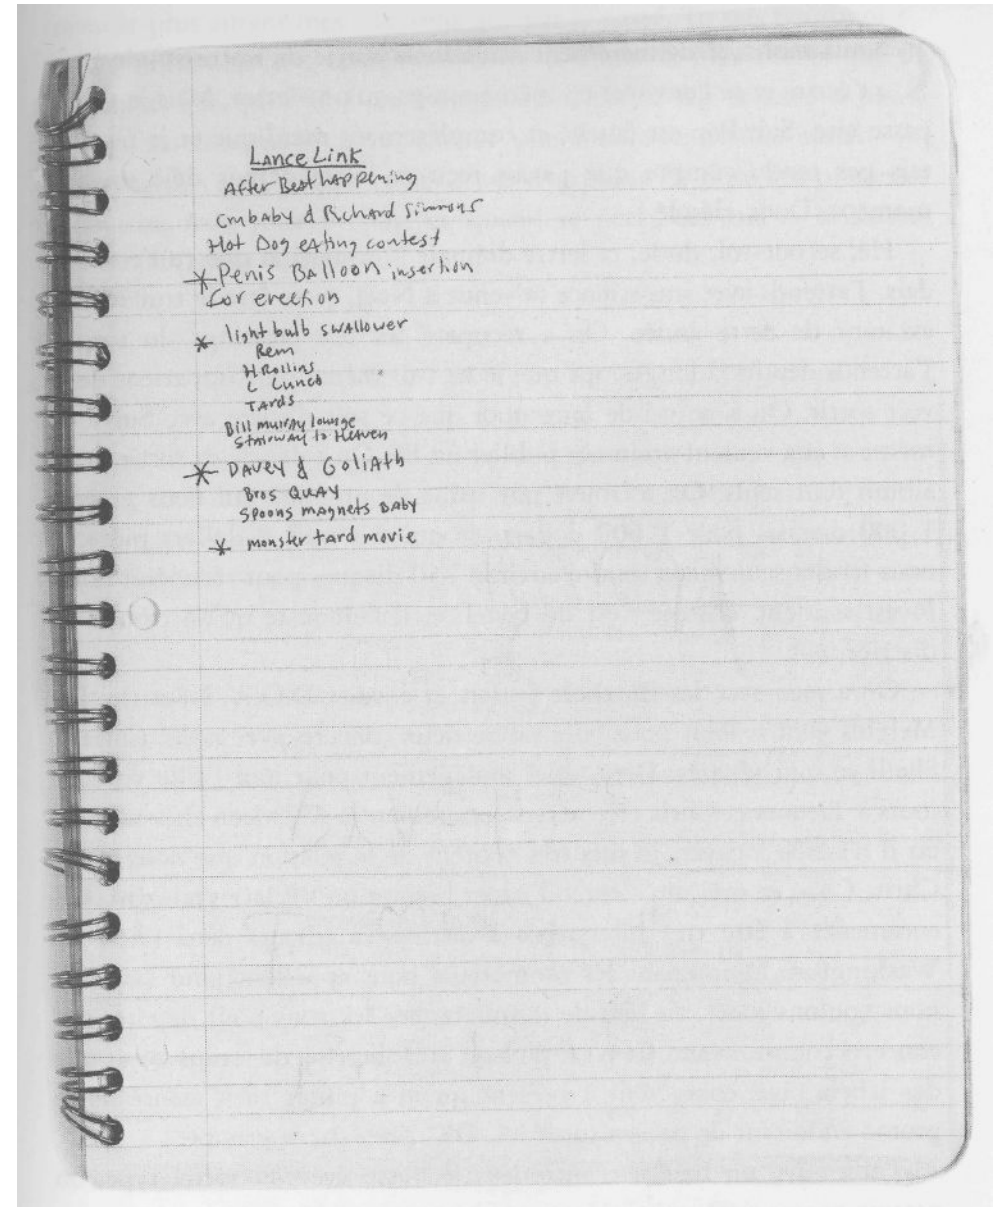 Lance Link
After Best happening
Crybaby & Richard Simmons
Hot Dog eating contest
* Penis Balloon insertion
for erection
* light bulb swallower
Rem
H Rollins
L Lunch
TARDS
Bill murray lounge
Stairway to Heaven
* DAVEY & GOLIATH
Bros QUAY
Spoons magnets BABY
* monster tard movie